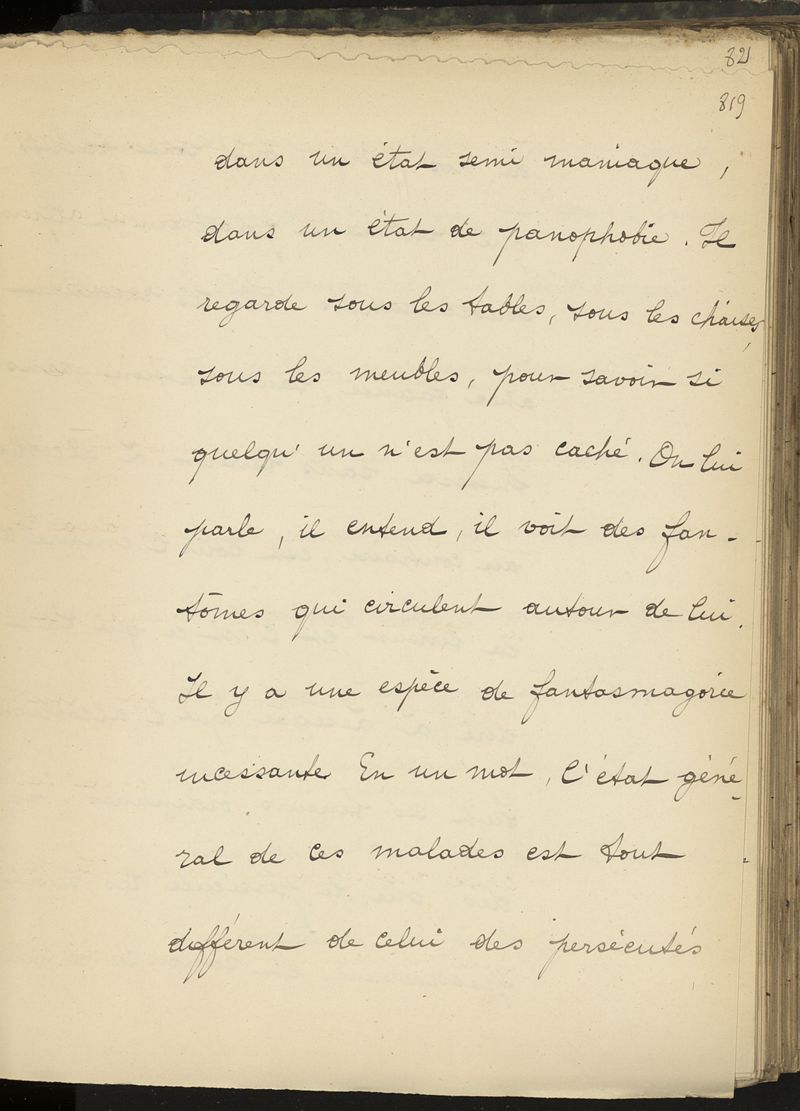 821
819
dans un état semi maniaque,
dans un état de panophobie. Il
regarde sous les tables, sous les chaises,
sous les meubles, pour savoir si
quelqu'un n'est pas caché. On lui
parle, il entend, il voit des fan-
tômes qui circulent autour de lui.
Il y a une espèce de fantasmagorie
incessante En un mot, l'état géné-
ral de ces malades est tout
différent de celui des persécutés